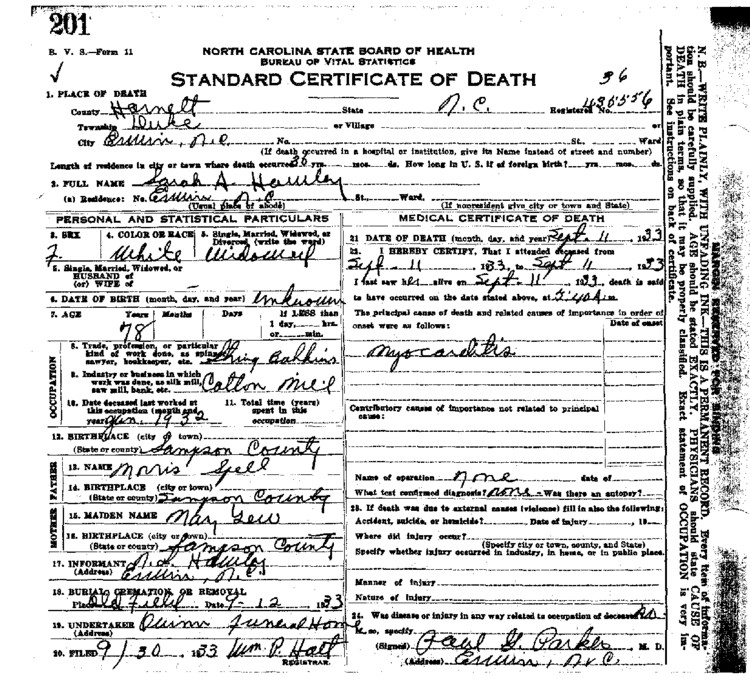 201
B. V. S.—Form 11
NORTH CAROLINA STATE BOARD OF HEALTH
BUREAU OF VITAL STATISTICS
STANDARD CERTIFICATE OF DEATH
36
1. PLACE OF DEATH
County Harnett State N. C. Registered No.
Township Duke or Village or
City Erwin, N.C. No. St. Ward
(If death occurred in a hospital or institution, give its Name instead of street and number)
Length of residence in city or town where death occurred 30 yrs. mos. ds. How long in U. S. if of foreign birth? yrs. mos. ds.
2. FULL NAME Sarah A. Hawley
(a) Residence: No. Erwin, N.C. St. Ward.
(Usual place of abode) (If nonresident give city or town and State)
PERSONAL AND STATISTICAL PARTICULARS
3. SEX 4. COLOR OR RACE 5. Single, Married, Widowed, or Divorced (write the word)
F. White Widowed
5. Single, Married, Widowed, or
HUSBAND of
(or) WIFE of
6. DATE OF BIRTH (month, day, and year) Unknown
7. AGE Years Months Days If LESS than
1 day, hrs.
78 or min.
8. Trade, profession, or particular
kind of work done, as spinner,
sawyer, bookkeeper, etc.
9. Industry or business in which
work was done, as silk mill,
saw mill, bank, etc. Cotton Mill
10. Date deceased last worked at 11. Total time (years)
this occupation (month and spent in this
year) Jan. 1932 occupation
OCCUPATION
12. BIRTHPLACE (city or town)
(State or county) Sampson County
13. NAME Morris Spell
14. BIRTHPLACE (city or town)
(State or county) Sampson County
FATHER
15. MAIDEN NAME May
16. BIRTHPLACE (city or town)
(State or county) Sampson County
MOTHER
17. INFORMANT Hawley
(Address) Erwin, N.C.
18. BURIAL, CREMATION, OR REMOVAL
Place Old Date 9-12 1933
19. UNDERTAKER Quinn Funeral Home
(Address)
20. FILED 9/30 1933 Wm. P. Holt
REGISTRAR.
MEDICAL CERTIFICATE OF DEATH
21 DATE OF DEATH (month, day, and year) Sept-11, 1933
22. I HEREBY CERTIFY, That I attended deceased from
Sept-11 1933 to Sept-11 1933
I last saw her alive on Sept-11 1933 death is said
to have occurred on the date stated above, at m.
The principal cause of death and related causes of importance in order of
onset were as follows: Date of onset
Myocarditis
Contributory causes of importance not related to principal
cause:
Name of operation None date of
What test confirmed diagnosis? None Was there an autopsy?
23. If death was due to external causes (violence) fill in also the following:
Accident, suicide, or homicide? Date of injury 19
Where did injury occur?
(Specify city or town, county, and State)
Specify whether injury occurred in industry, in home, or in public place.
Manner of injury
Nature of injury
24. Was disease or injury in any way related to occupation of deceased? No
If so, specify
(Signed) Paul G. Parker M. D.
(Address) Erwin, N.C.
MARGIN RESERVED FOR BINDING
N. B.—WRITE PLAINLY, WITH UNFADING INK—THIS IS A PERMANENT RECORD. Every item of information should be carefully supplied. AGE should be stated EXACTLY. PHYSICIANS should state CAUSE OF DEATH in plain terms, so that it may be properly classified. Exact statement of OCCUPATION is very important. See instructions on back of certificate.